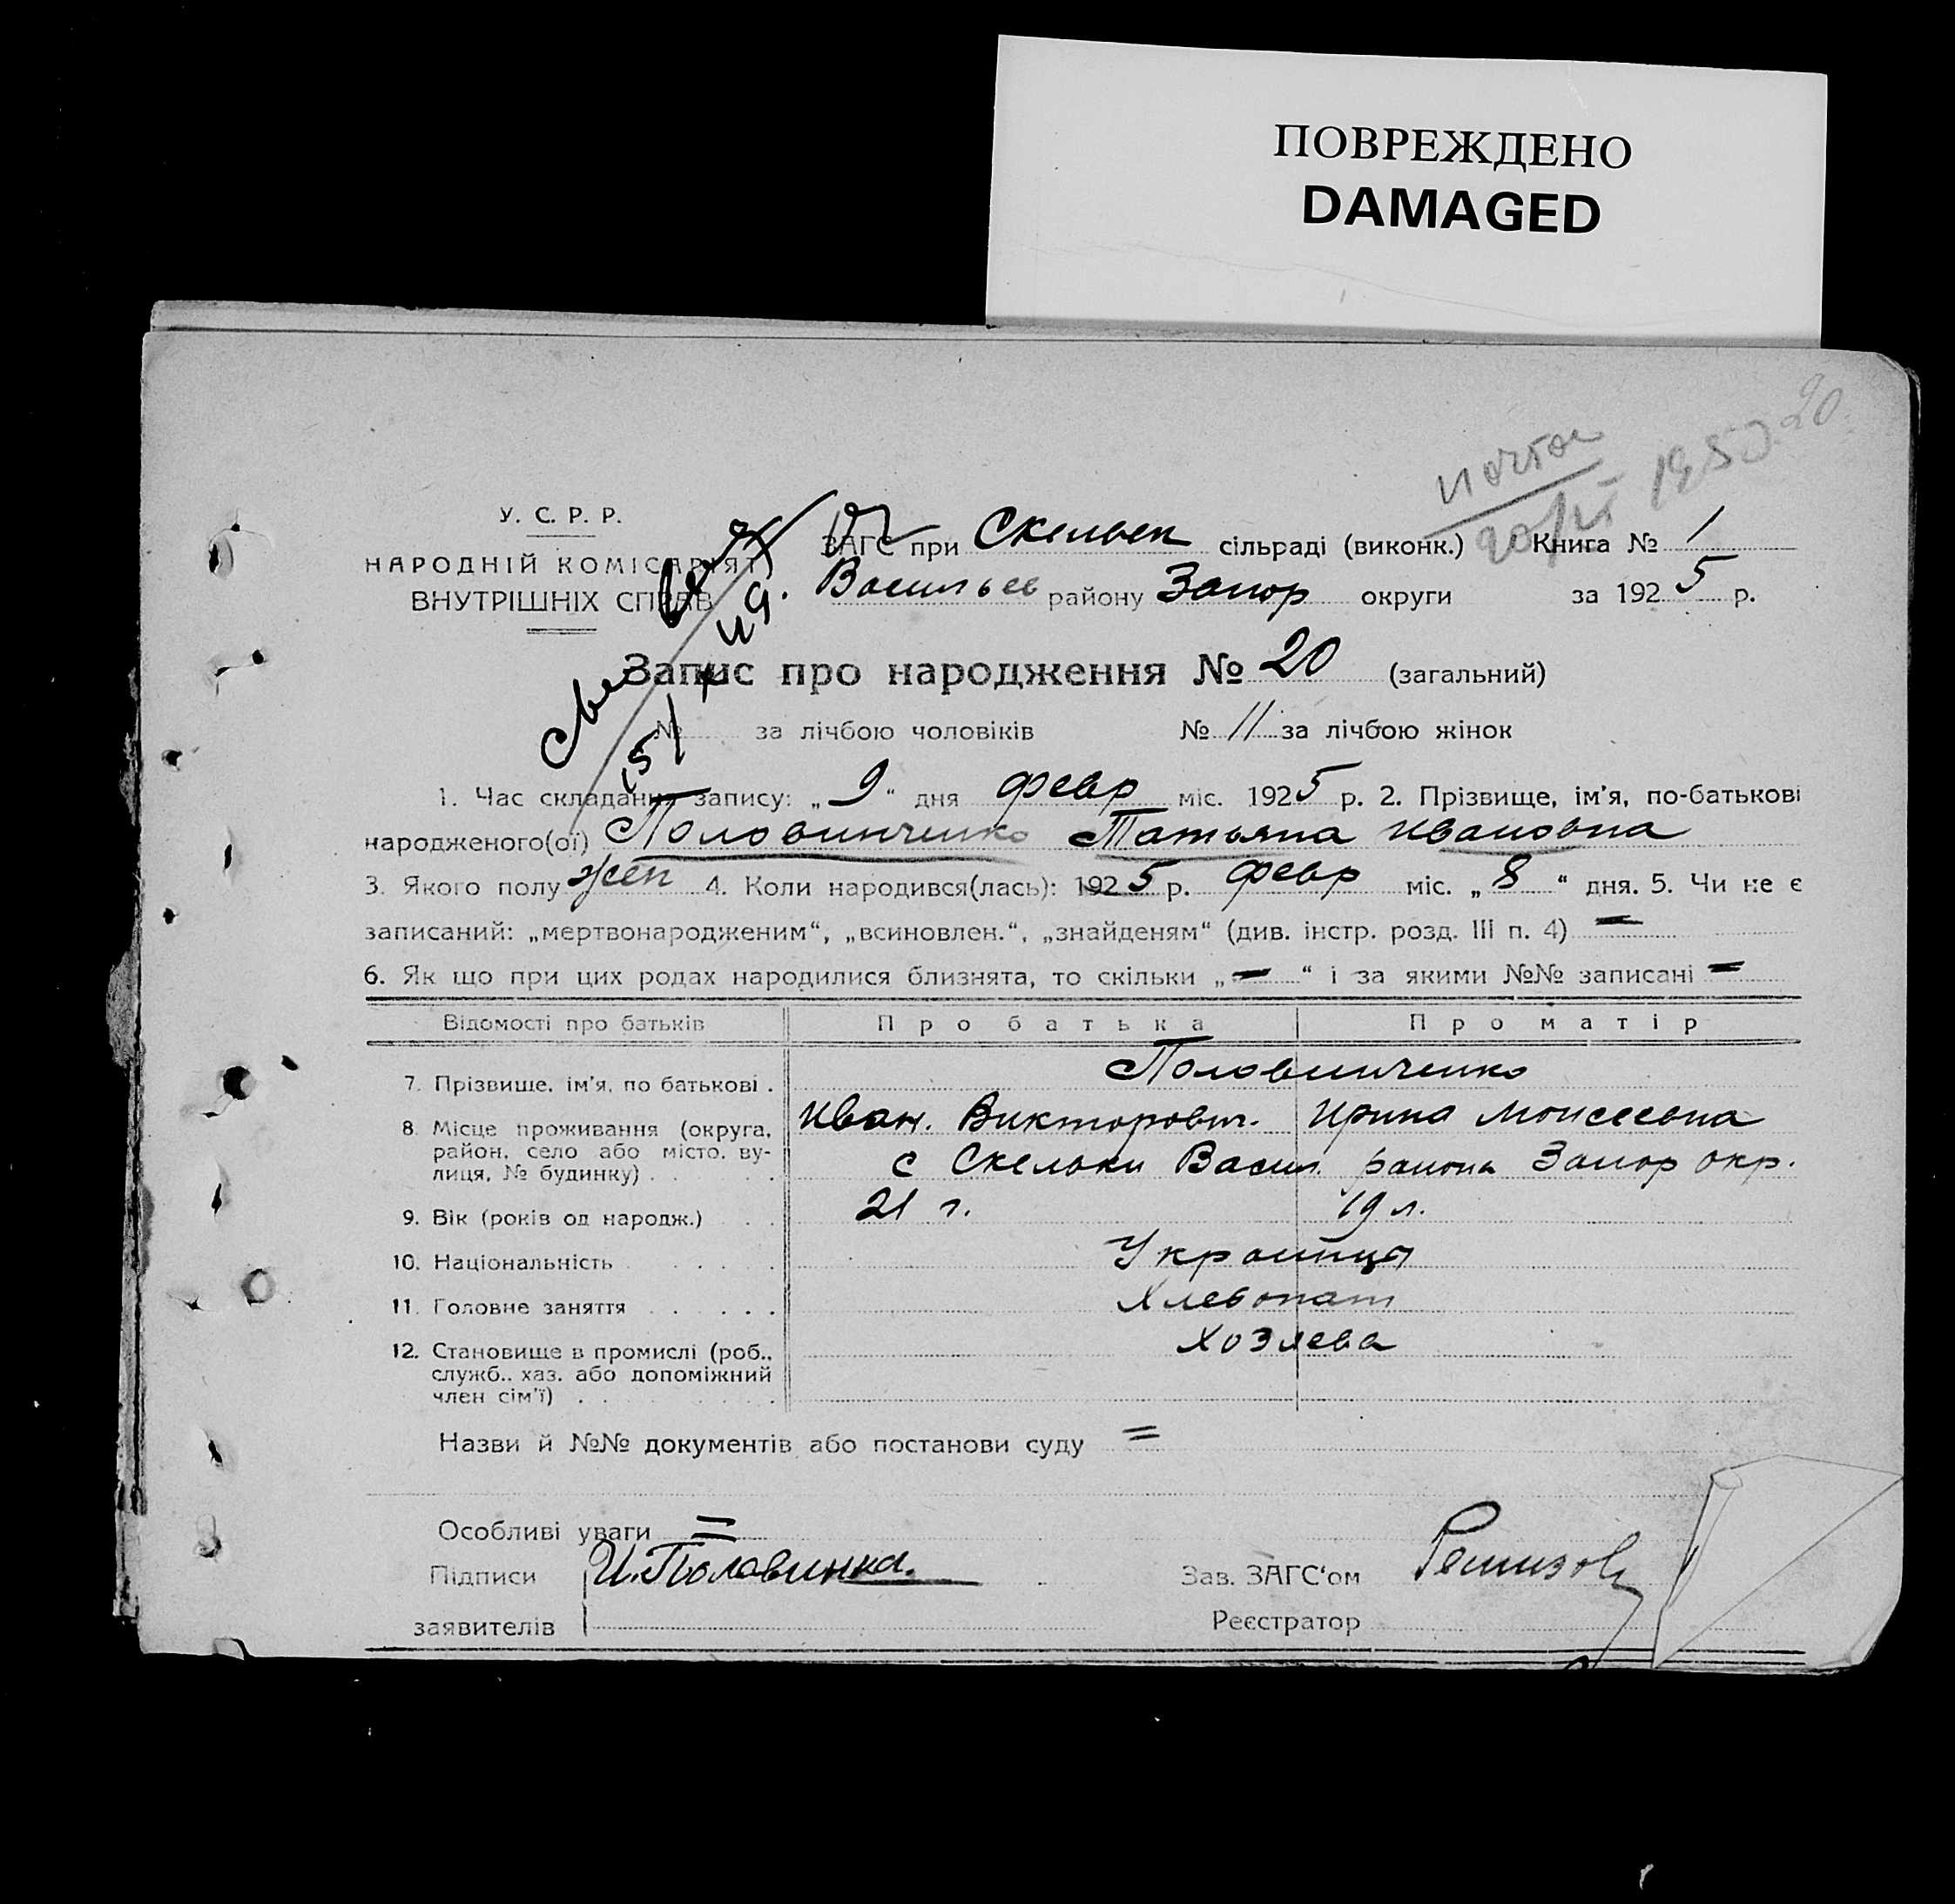 ПОВРЕЖДЕНО
DAMAGED
20
1950
У. С. Р. Р.
НАРОДНІЙ КОМІСАРІЯТ
ВНУТРІШНІХ СПРАВ
ЗАГС при Скельек сільраді (виконк.) Книга № 1
Васильев району Запор округи за 1925 р.
Запис про народження № 20 (загальний)
№ за лічбою чоловіків № 11 за лічбою жінок
1. Час складання запису: „9“ дня февр міс. 1925 р. 2. Прізвище, ім’я, по-батькові
народженого(ої) Половинченко Татьяна Ивановна
3. Якого полу жен 4. Коли народився(лась): 1925 р. февр міс. „8“ дня. 5. Чи не є
записаний: „мертвонародженим“, „всиновлен.“, „знайденям“ (див. інстр. розд. III п. 4) =
6. Як що при цих родах народилися близнята, то скільки „=“ і за якими №№ записані =
Відомості про батьків Про батька Про матір
7. Прізвище, ім’я, по батькові . Половинченко
Иван. Викторович. Ирина Моисеевна
8. Місце проживання (округа, район, село або місто, вулиця, № будинку) . с Скельки Васил. района Запор окр.
9. Вік (років од народж.) 21 г. 19 л.
10. Національність Украинця
11. Головне заняття Хлебопаш
12. Становище в промислі (роб., служб., хаз. або допоміжний член сім’ї) . Хозяева
Назви й №№ документів або постанови суду =
Особливі уваги =
Підписи И. Половинка. Зав. ЗАГС‘ом Ремизов
заявителів Реєстратор